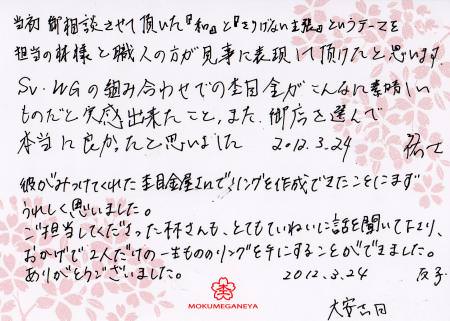 当初御相談させて頂いた『和』と『さりげない主張』というテーマを
担当の林様と職人の方が見事に表現して頂けたと思います。
Sv・WGの組み合わせでの杢目金がこんなに素晴しい
ものだと実感出来たこと、また、御店を選んで
本当に良かったと思いました 2012.3.24
彼がみつけてくれた杢目金屋さんでリングを作成できたことにまず
うれしく思いました。
ご担当してくださった林さんも、とてもていねいに話を聞いて下さり、
おかげで2人だけの一生もののリングを手にすることができました。
ありがとうございました。 2012.3.24
MOKUMEGANEYA